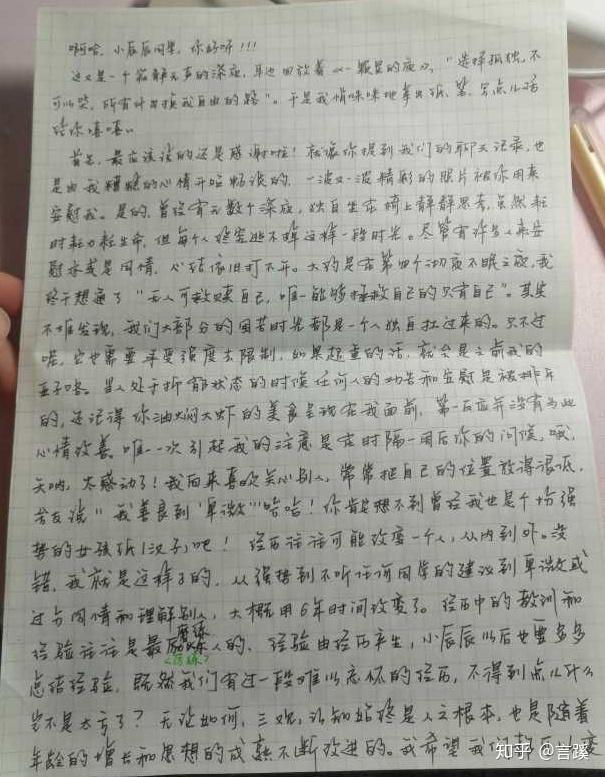 啊哈，小辰辰同学，你好呀！！！
这又是一个寂静无声的深夜，耳边回放着《一颗星的夜》，“选择孤独，不
可以哭，所有什么挡我自由的路”。于是我悄咪咪地拿出纸、笔，写点儿话
给你嘻嘻。
首先，最应该说的还是感谢啦！就像你提到我们的聊天记录，也
是由我糟糕的心情开始畅谈的，一波又一波精彩的照片被你用来
安慰我。是的，曾经有无数个深夜，独自坐在椅上静静思考，虽然耗
时耗力耗生命，但每个人终究逃不掉这样一段时光。尽管有许多人来安
慰亦或是同情，心结依旧打不开。大约是在第四个彻夜不眠之夜，我
终于想通了“无人可救赎自己，唯一能够拯救自己的只有自己”。其实
不难发现，我们大部分的困苦时光都是一个人独自扛过来的。只不过
呢，它也需要承受强度去限制，如果超重的话，就会是之前我的
至子咯。当人处于抑郁状态的时候任何人的劝告和安慰是被排斥
的，还记得你油焖大虾的美食呈现在我面前，第一反应并没有为此
心情改善，唯一一次引起我的注意是在时隔一周后你的问候，哦，
天呐，太感动了！我向来喜欢关心别人，常常把自己的位置放得很低，
老友说“我善良到‘卑微’”哈哈！你肯定想不到曾经我也是个十分强
势的女孩纸（汉子）吧！经历往往可能改变一个人，从内到外。没
错，我就是这样子的，从强势到不听任何同学的建议到卑微或
过分同情和理解别人，大概用6年时间改变了。经历中的教训和
经验往往是最磨练人的，经验由经历产生，小辰辰以后也要多多
<历练>
总结经验，既然我们有过一段难以忘怀的经历，不得到点儿什么
岂不是太亏了？无论如何，三观，认知始终是人之根本，也是随着
年龄的增长和思想的成熟不断改进的。我希望我们都可以变
知乎 @言蹊